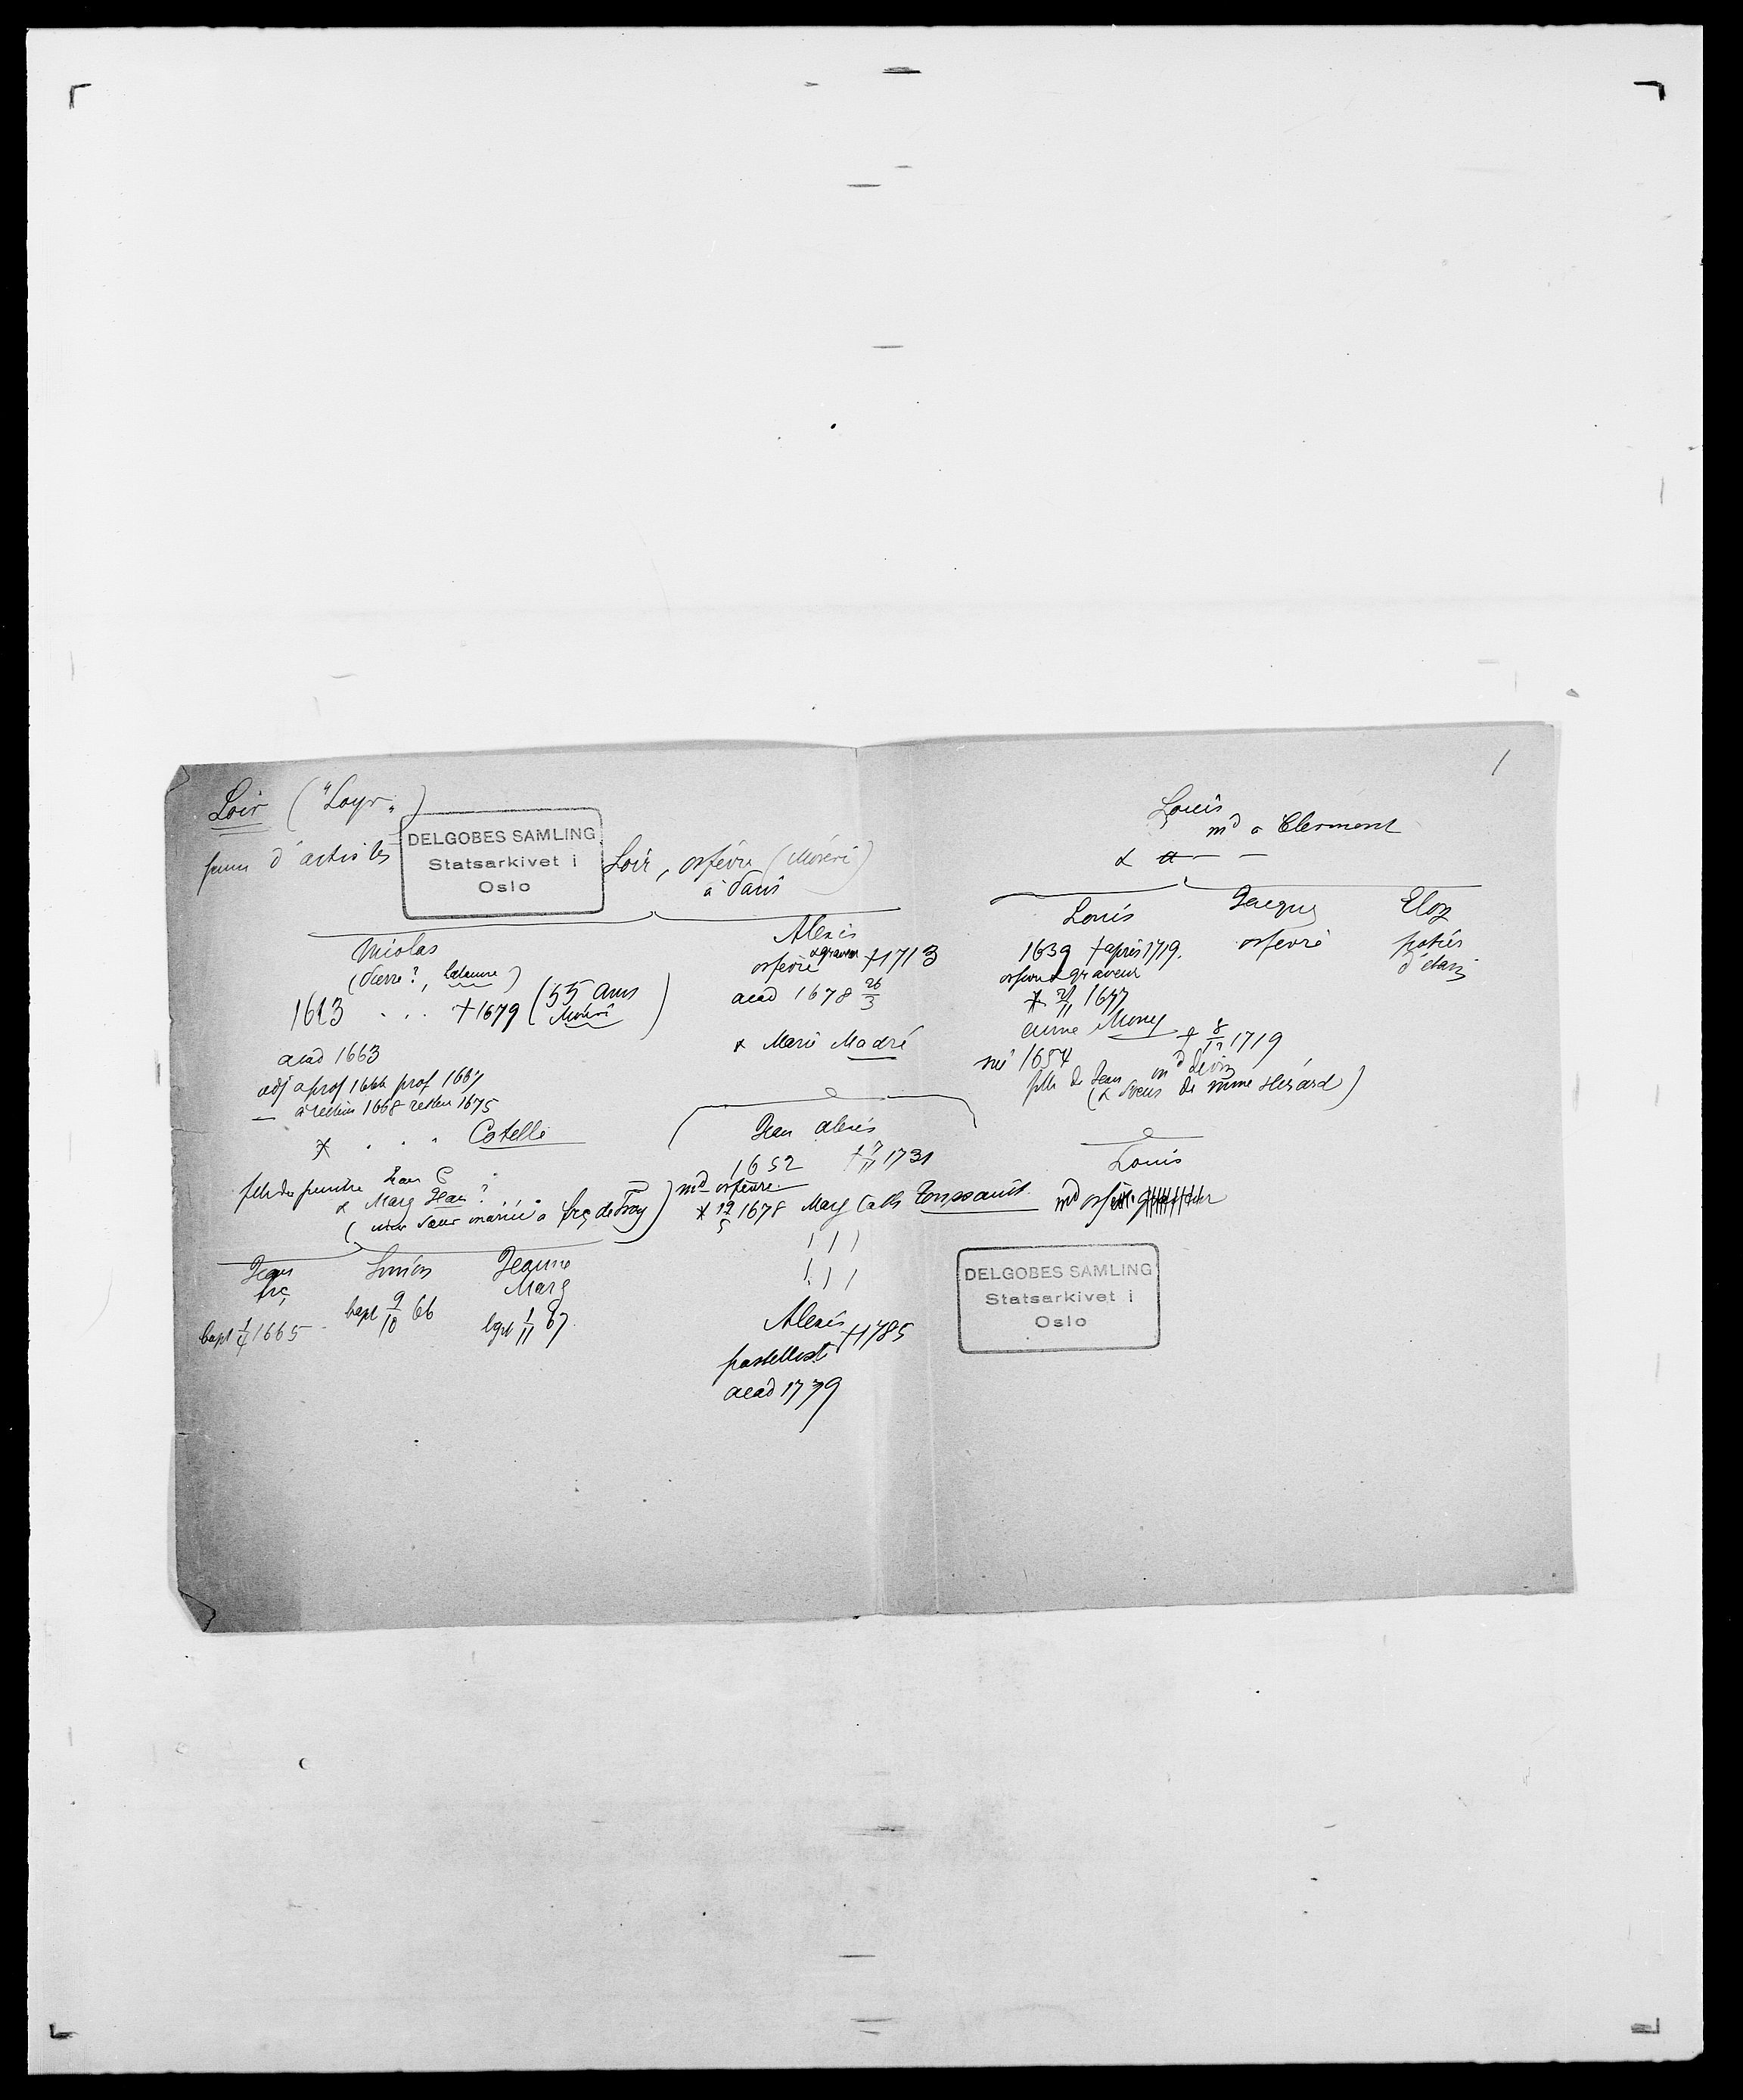 1
Loir ("Loyr")
d'artistes
DELGOBES SAMLING
Statsarkivet i
Oslo
Loir, orfévre (Moréri)
à Paris
Nicolas
(Pierre?, Lalanne)
1623 . . . †1679 (55 ans
Moréri)
acad 1663
adj a prof 1666 prof 1667
— à recteur 1668 recteur 1675
× . . . Cotelle
fille du peintre Jean C
× Marg Jean?
(une soeur mariée a frç de Troy)
Jean
frç
bapt 1/4 1665
Simon
bapt 9/10 66
Jeanne
Marg
bapt 1/11 67
Alexis
orfévre & graveur †1713
acad 1678 26/3
× Marie Madré
Jean Alexis
1652 † 7/11 1731
md orfévre
× 12/5 1678 Marg Cath Toussaint
Alexis
pastellist †1785
acad 1779
Louis
md a Clermont
× a — —
Louis
1639 † après 1719.
orfevre & graveur
× 21/11 1677
Anne Money † 8/12 1719
né 1654
fille de Jean md
(& soeur de mme Hérard)
Jacques
orfevre
Eloy
potier
d'étain
Louis
md orfévre
DELGOBES SAMLING
Statsarkivet i
Oslo